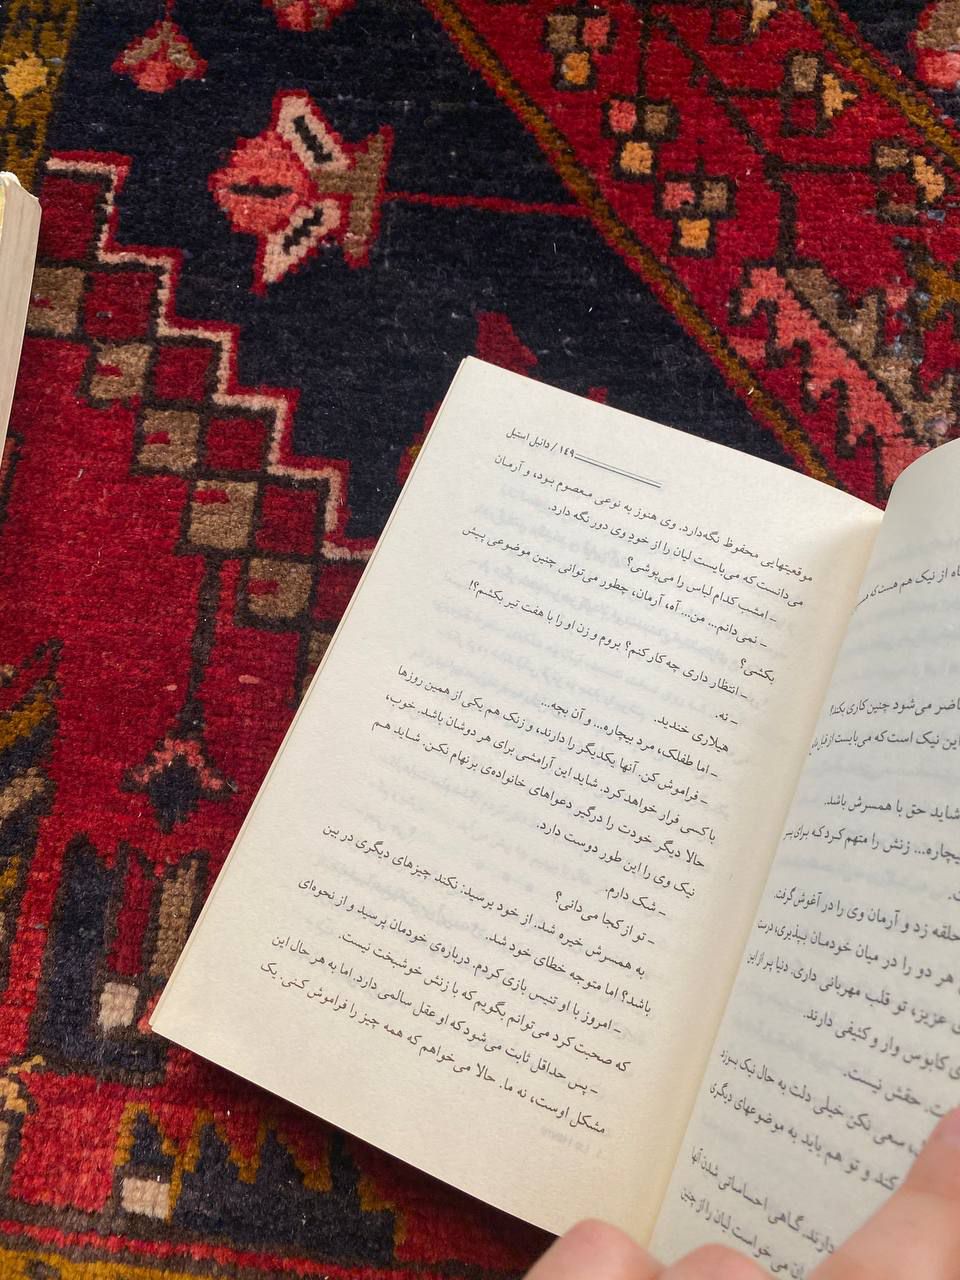 ۱۴۹ / دانیل استیل
موقعیتهایی محفوظ نگه‌دارد. وی هنوز به نوعی معصوم بود، و آرمان
می‌دانست که می‌بایست لیان را از خود وی دور نگه دارد.
ـ امشب کدام لباس را می‌پوشی؟
ـ نمی‌دانم... من... آه، آرمان، چطور می‌توانی چنین موضوعی پیش
بکشی؟
ـ انتظار داری چه کار کنم؟ بروم و زن او را با هفت تیر بکشم؟!
ـ نه.
هیلاری خندید.
ـ اما طفلک، مرد بیچاره... و آن بچه...
ـ فراموش کن. آنها یکدیگر را دارند، و زنک هم یکی از همین روزها
با کسی فرار خواهد کرد. شاید این آرامشی برای هر دوشان باشد. خوب،
حالا دیگر خودت را درگیر دعواهای خانواده‌ی برنهام نکن. شاید هم
نیک وی را این طور دوست دارد.
ـ شک دارم.
ـ تو از کجا می‌دانی؟
به همسرش خیره شد. از خود پرسید: نکند چیزهای دیگری در بین
باشد؟ اما متوجه خطای خود شد.
ـ امروز با او تنیس بازی کردم. درباره‌ی خودمان پرسید و از نحوه‌ای
که صحبت کرد می‌توانم بگویم که با زنش خوشبخت نیست.
ـ پس حداقل ثابت می‌شود که او عقل سالمی دارد. اما به هر حال این
مشکل اوست، نه ما. حالا می‌خواهم که همه چیز را فراموش کنی. یک
از نیک هم هست که
می‌شود چنین کاری بکند؟
این نیک است که می‌بایست از
شاید حق با همسرش باشد.
زنش را متهم کرد که برای
حلقه زد و آرمان وی را در آغوش گرفت.
هر دو را در میان خودمان بپذیری، درست
عزیز، تو قلب مهربانی داری. دنیا پر از این
کابوس وار و کثیفی دارند.
حقش نیست.
سعی نکن خیلی دلت به حال نیک بسوزد
کند و تو هم باید به موضوعهای دیگری
دارند. گاهی احساساتی شدن آنها
می خواست لیان را از چنین